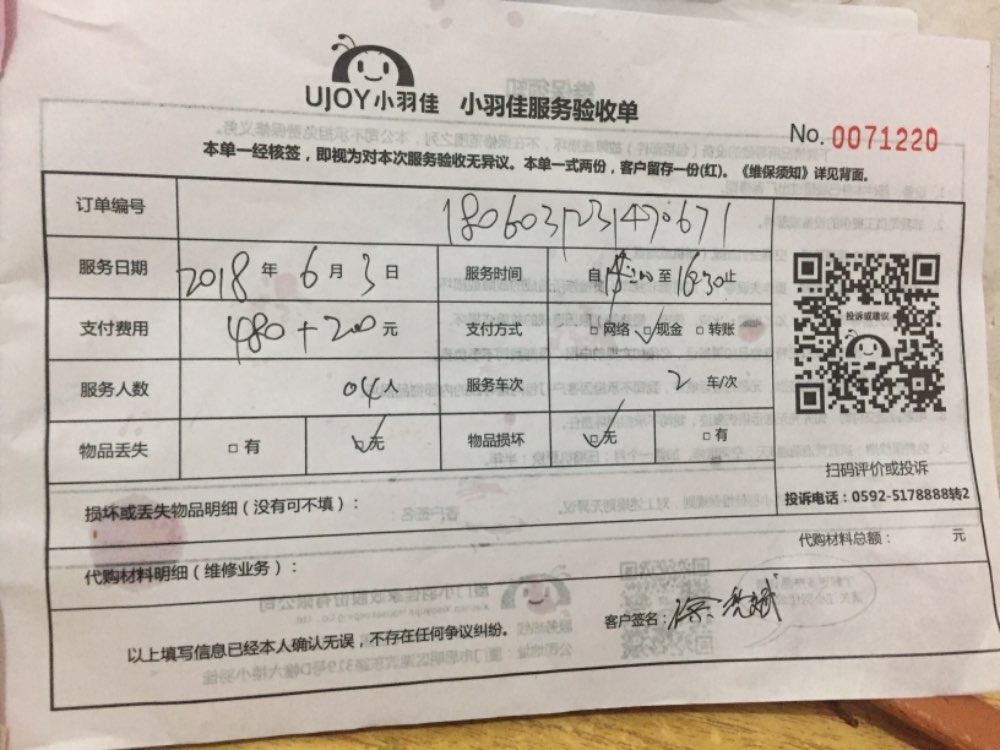 UJOY小羽佳 小羽佳服务验收单
No. 0071220
本单一经核签，即视为对本次服务验收无异议。本单一式两份，客户留存一份(红)。《维保须知》详见背面。
订单编号 180603123147067 1
服务日期 2018年6月3日 服务时间 自 至16:30止
支付费用 480+200元 支付方式 □网络 ☑现金 □转账
投诉或建议
服务人数 04人 服务车次 2 车/次
物品丢失 □有 ☑无 物品损坏 ☑无 □有
扫码评价或投诉
投诉电话：0592-5178888转2
损坏或丢失物品明细（没有可不填）：
代购材料总额： 元
代购材料明细（维修业务）：
客户签名：
以上填写信息已经本人确认无误，不存在任何争议纠纷。